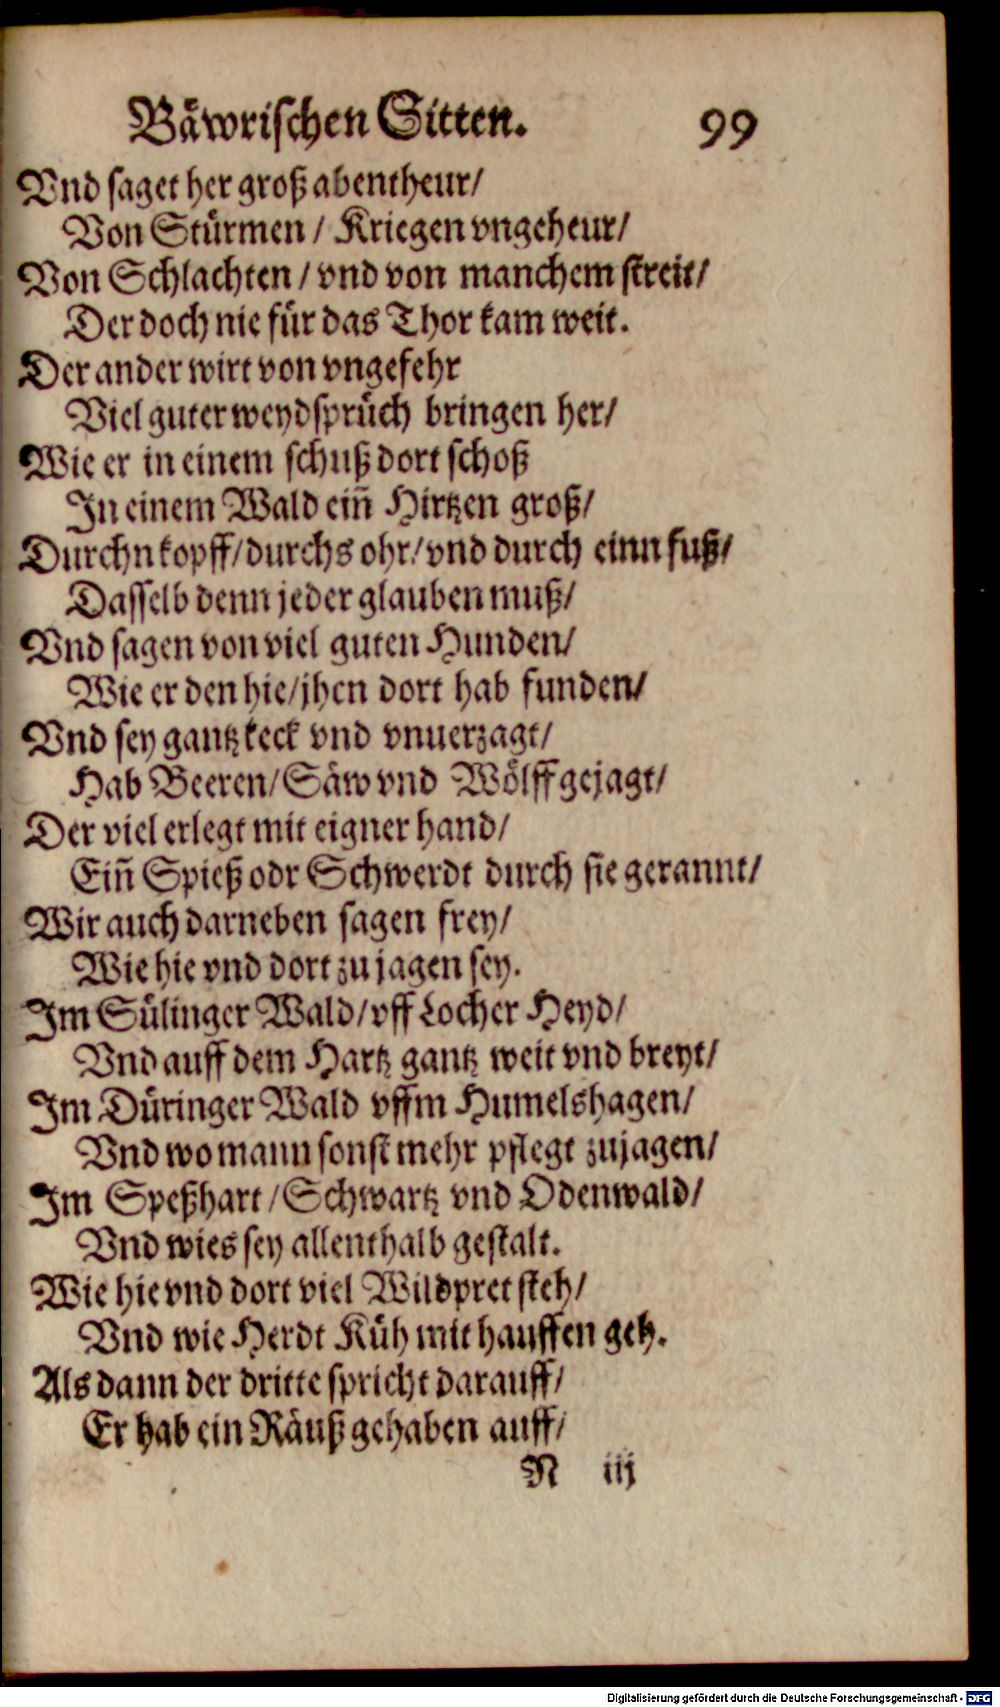 Bäwrischen Sitten. 99
Vnd saget her groß abentheur/
Von Stürmen / Kriegen vngeheur/
Von Schlachten / vnd von manchem streit/
Der doch nie für das Thor kam weit.
Der ander wirt von vngefehr
Viel guter weydsprüch bringen her/
Wie er in einem schuß dort schoß
In einem Wald eiñ Hirtzen groß/
Durchn kopff/durchs ohr/vnd durch einn fuß/
Dasselb denn jeder glauben muß/
Vnd sagen von viel guten Hunden/
Wie er den hie/jhen dort hab funden/
Vnd sey gantz keck vnd vnuerzagt/
Hab Beeren/Säw vnd Wölff gejagt/
Der viel erlegt mit eigner hand/
Eiñ Spieß odr Schwerdt durch sie gerannt/
Wir auch darneben sagen frey/
Wie hie vnd dort zu jagen sey.
Im Sülinger Wald/vff Locher Heyd/
Vnd auff dem Hartz gantz weit vnd breyt/
Im Düringer Wald vffm Humelshagen/
Vnd wo mann sonst mehr pflegt zujagen/
Im Speßhart /Schwartz vnd Odenwald/
Vnd wies sey allenthalb gestalt.
Wie hie vnd dort viel Wildpret steh/
Vnd wie Herdt Küh mit hauffen geh.
Als dann der dritte spricht darauff/
Er hab ein Räuß gehaben auff/
N iij
Digitalisierung gefördert durch die Deutsche Forschungsgemeinschaft - DFG